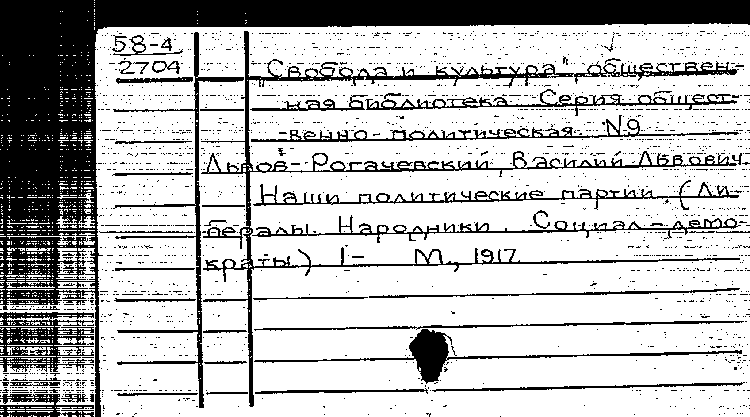 58-4
2704
„Свобода и культура", обществен-
ная библиотека. Серия общест-
венно-политическая. N9
Львов-Рогачевский, Василий Львович
Наши политические партии. (Ли-
бералы. Народники. Социал-демо-
краты.) I- М., 1917